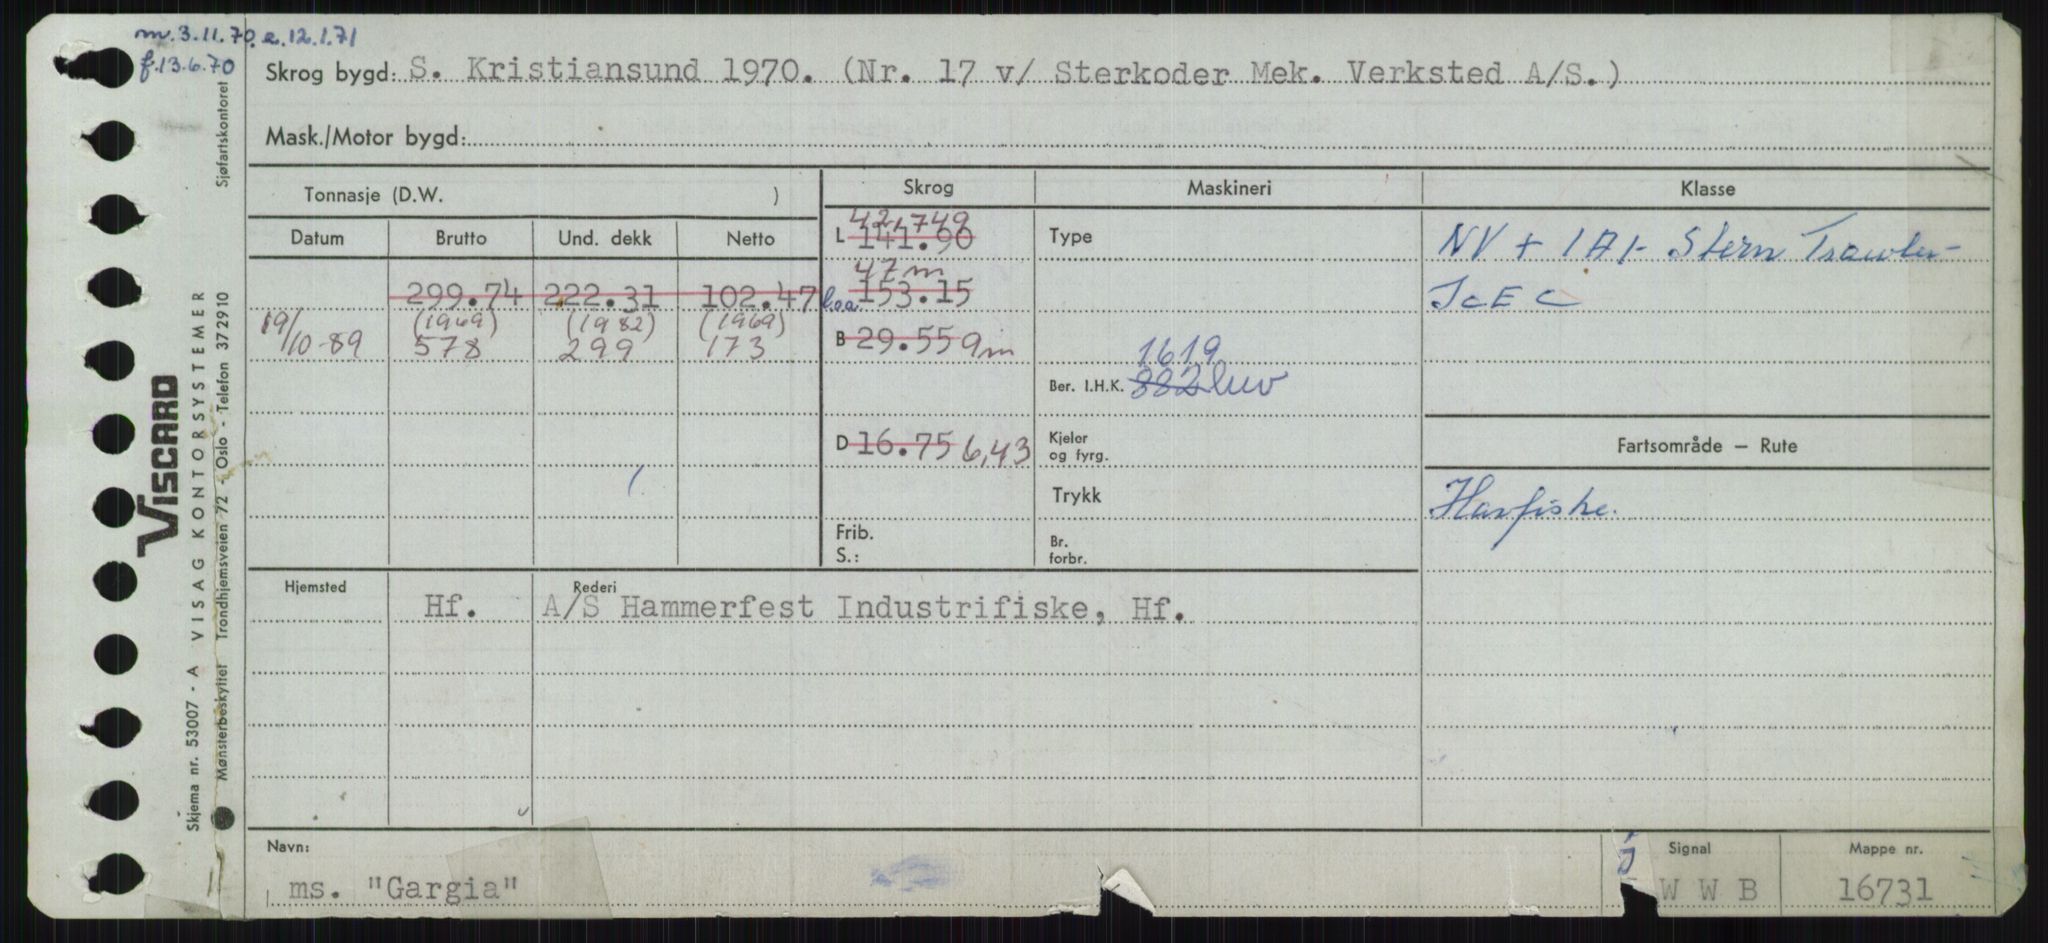 m. 3.11.70. e. 12.1.71
f. 13.6.70
Skrog bygd: S. Kristiansund 1970. (Nr. 17 v/ Sterkoder Mek. Verksted A/S.)
Mask./Motor bygd:
Tonnasje (D.W. )
Skrog
Maskineri
Klasse
Datum Brutto Und. dekk Netto
L 42,749
141.90
Type
NV + 1A1- Stern Trawler-
299.74 222.31 102.47
47m
loa 153.15
IcE C
19/10-89 (1969) 578 (1982) 299 (1969) 173
B 29.55 9m
1619
Ber. I.H.K. 882
D 16.75 6,43
Kjeler
og fyrg.
Fartsområde — Rute
Trykk
Havfiske.
Frib.
S.:
Br.
forbr.
Hjemsted
Rederi
Hf. A/S Hammerfest Industrifiske, Hf.
Navn:
ms. "Gargia"
Signal
W W B
Mappe nr.
16731
VISCARD
Skjema nr. 53007 - A VISAG KONTORSYSTEMER
Mønsterbeskyttet Trondhjemsveien 72 - Oslo - Telefon 372910
Sjøfartskontoret